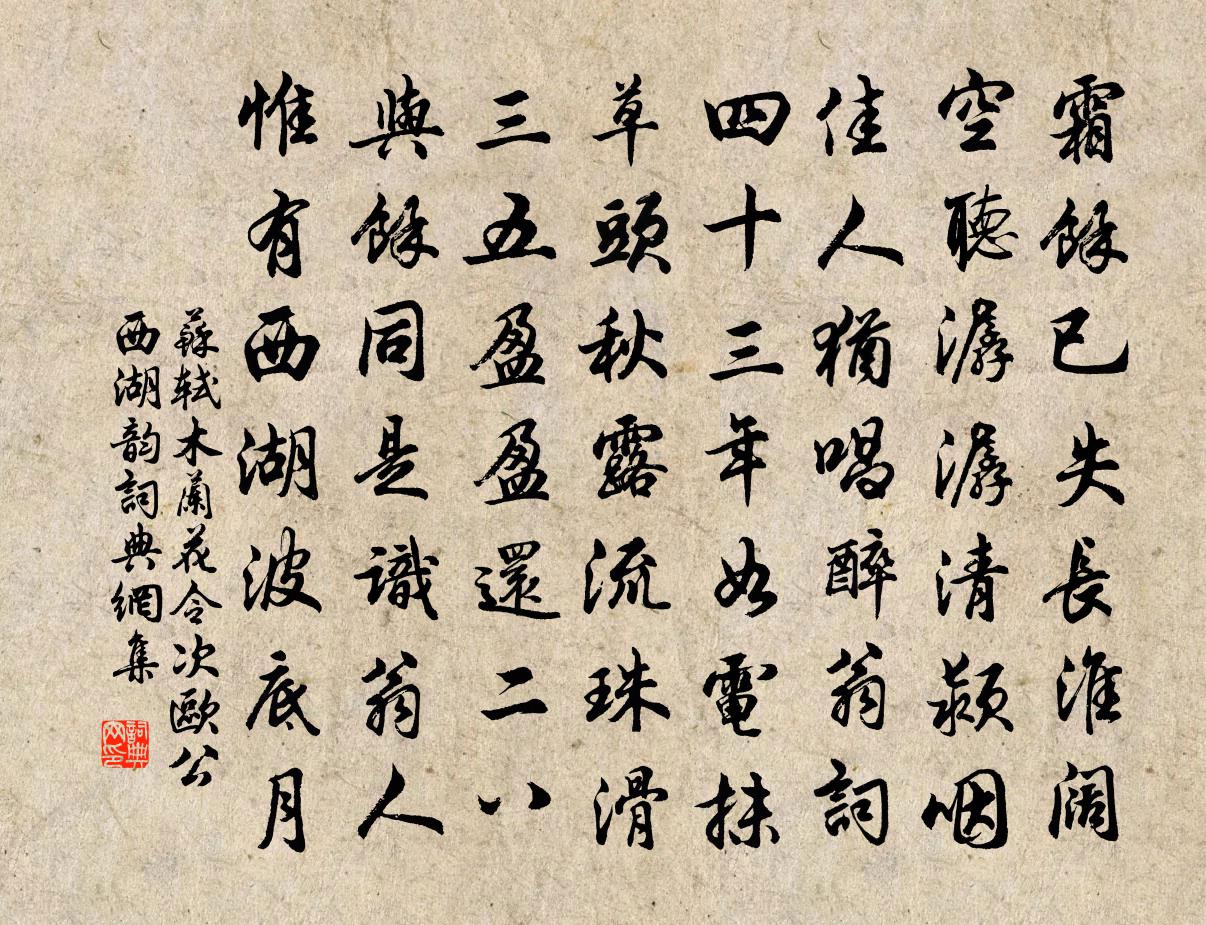 霜餘已失長淮闊
空聽潺潺清潁咽
佳人猶唱醉翁詞
四十三年如電抹
草頭秋露流珠滑
三五盈盈還二八
與餘同是識翁人
惟有西湖波底月
蘇軾木蘭花令次歐公
西湖韵詞典網集
詞典
网印